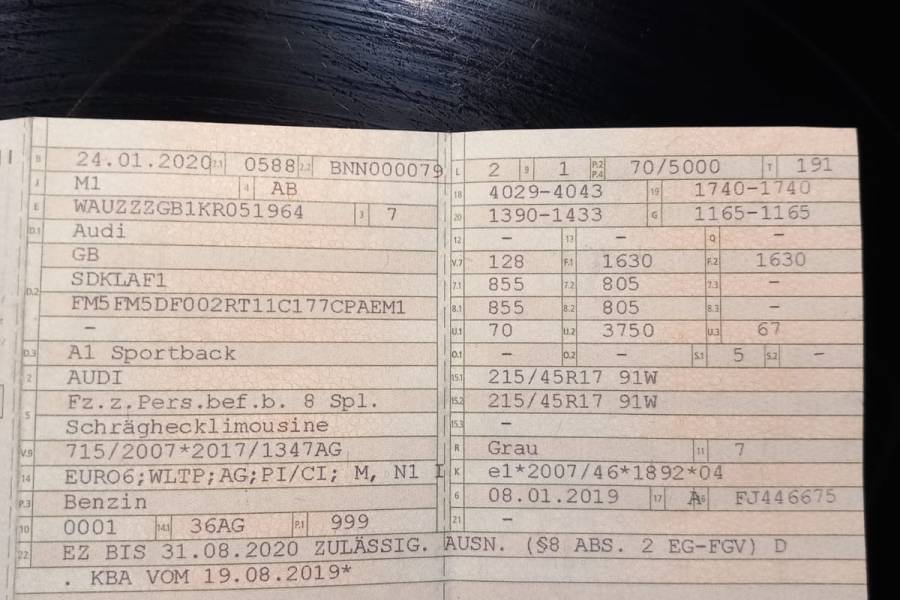 B 24.01.2020 2.1 0588 2.2 BNN000079
J M1 4 AB
E WAUZZZGB1KR051964 3 7
D.1 Audi
GB
D.2 SDKLAF1
FM5FM5DF002RT11C177CPAEM1
–
D.3 A1 Sportback
2 AUDI
5 Fz.z.Pers.bef.b. 8 Spl.
Schräghecklimousine
V.9 715/2007*2017/1347AG
14 EURO6;WLTP;AG;PI/CI; M, N1 I
P.3 Benzin
10 0001 14.1 36AG P.1 999
22 EZ BIS 31.08.2020 ZULÄSSIG. AUSN. (§8 ABS. 2 EG-FGV) D
. KBA VOM 19.08.2019*
L 2 9 1 P.2 P.4 70/5000 T 191
18 4029-4043 19 1740-1740
20 1390-1433 G 1165-1165
12 – 13 – Q –
V.7 128 F.1 1630 F.2 1630
7.1 855 7.2 805 7.3 –
8.1 855 8.2 805 8.3 –
U.1 70 U.2 3750 U.3 67
O.1 – O.2 – S.1 5 S.2 –
15.1 215/45R17 91W
15.2 215/45R17 91W
15.3 –
R Grau 11 7
K e1*2007/46*1892*04
6 08.01.2019 17 A 16 FJ446675
21 –